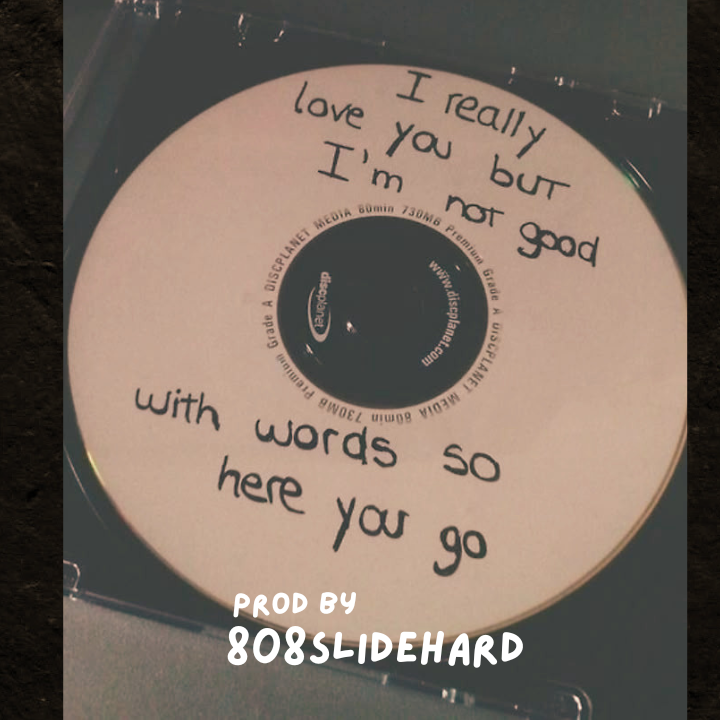 I really
love you but
I'm not good
DISCPLANET MEDIA 80min 730MB Premium Grade A DISCPLANET MEDIA 80min 730MB Premium Grade A
discplanet
www.discplanet.com
with words so
here you go
PROD BY
808SLIDEHARD